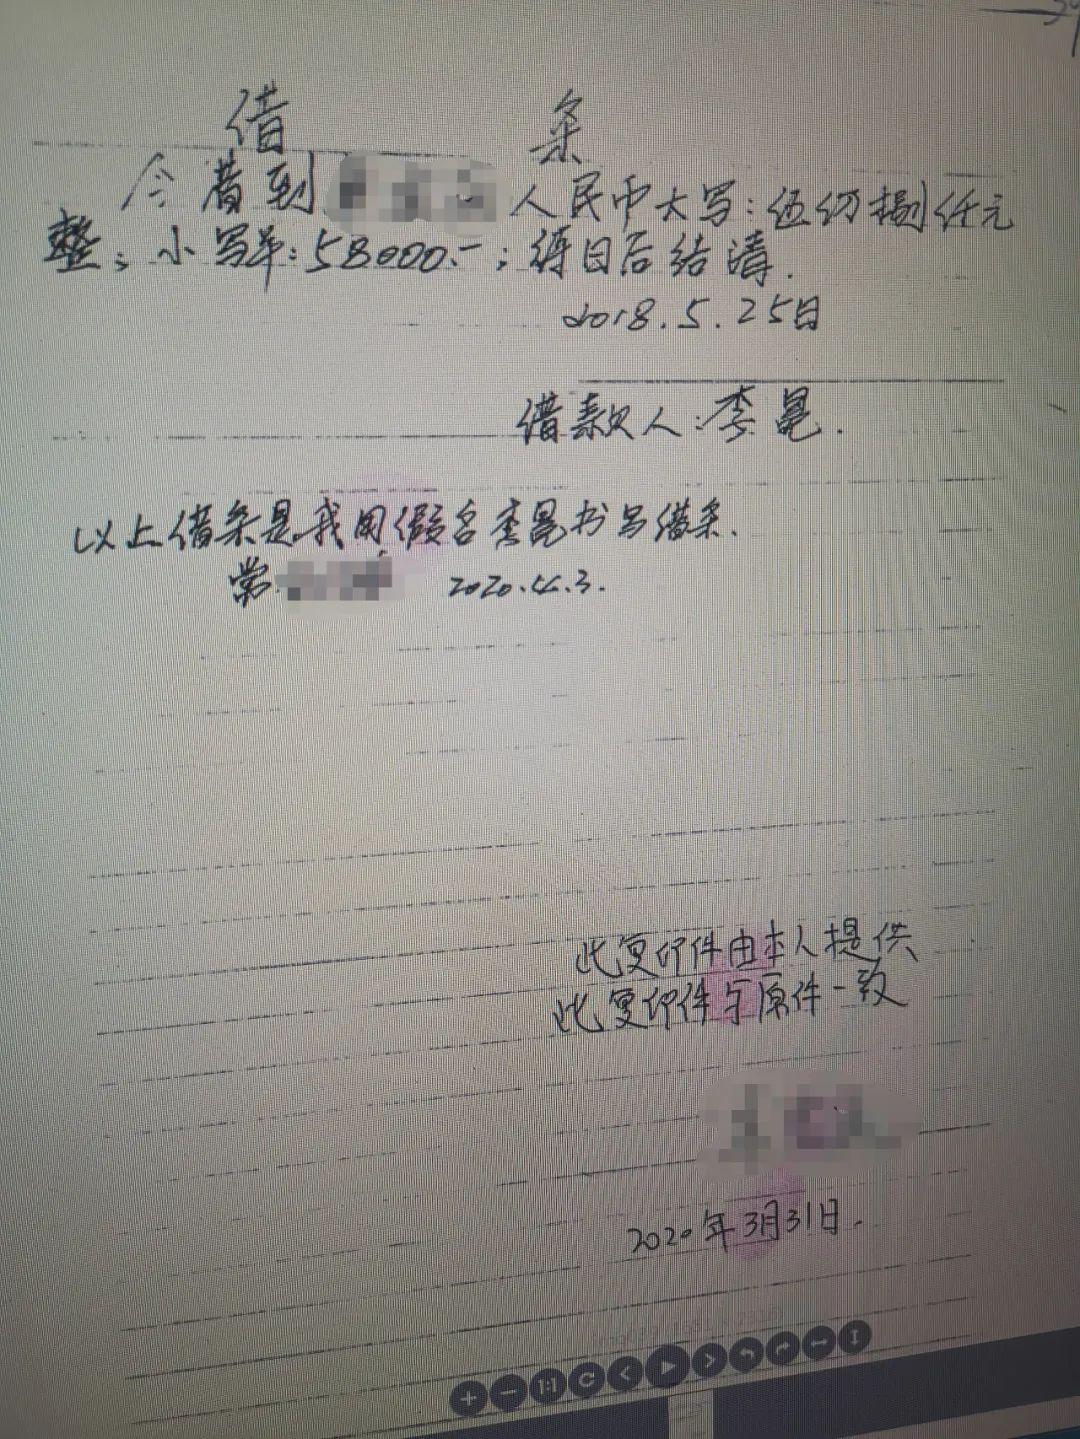 借 条
今借到 人民币大写：伍仿捌仟元
整；小写羊：58000.-；缛日后结清.
2018.5.25日
借款人：李冕.
以上借条是我用假名李冕书写借条.
常 2020.4.3.
此复印件由本人提供
此复印件与原件一致
2020年3月31日.
1:1